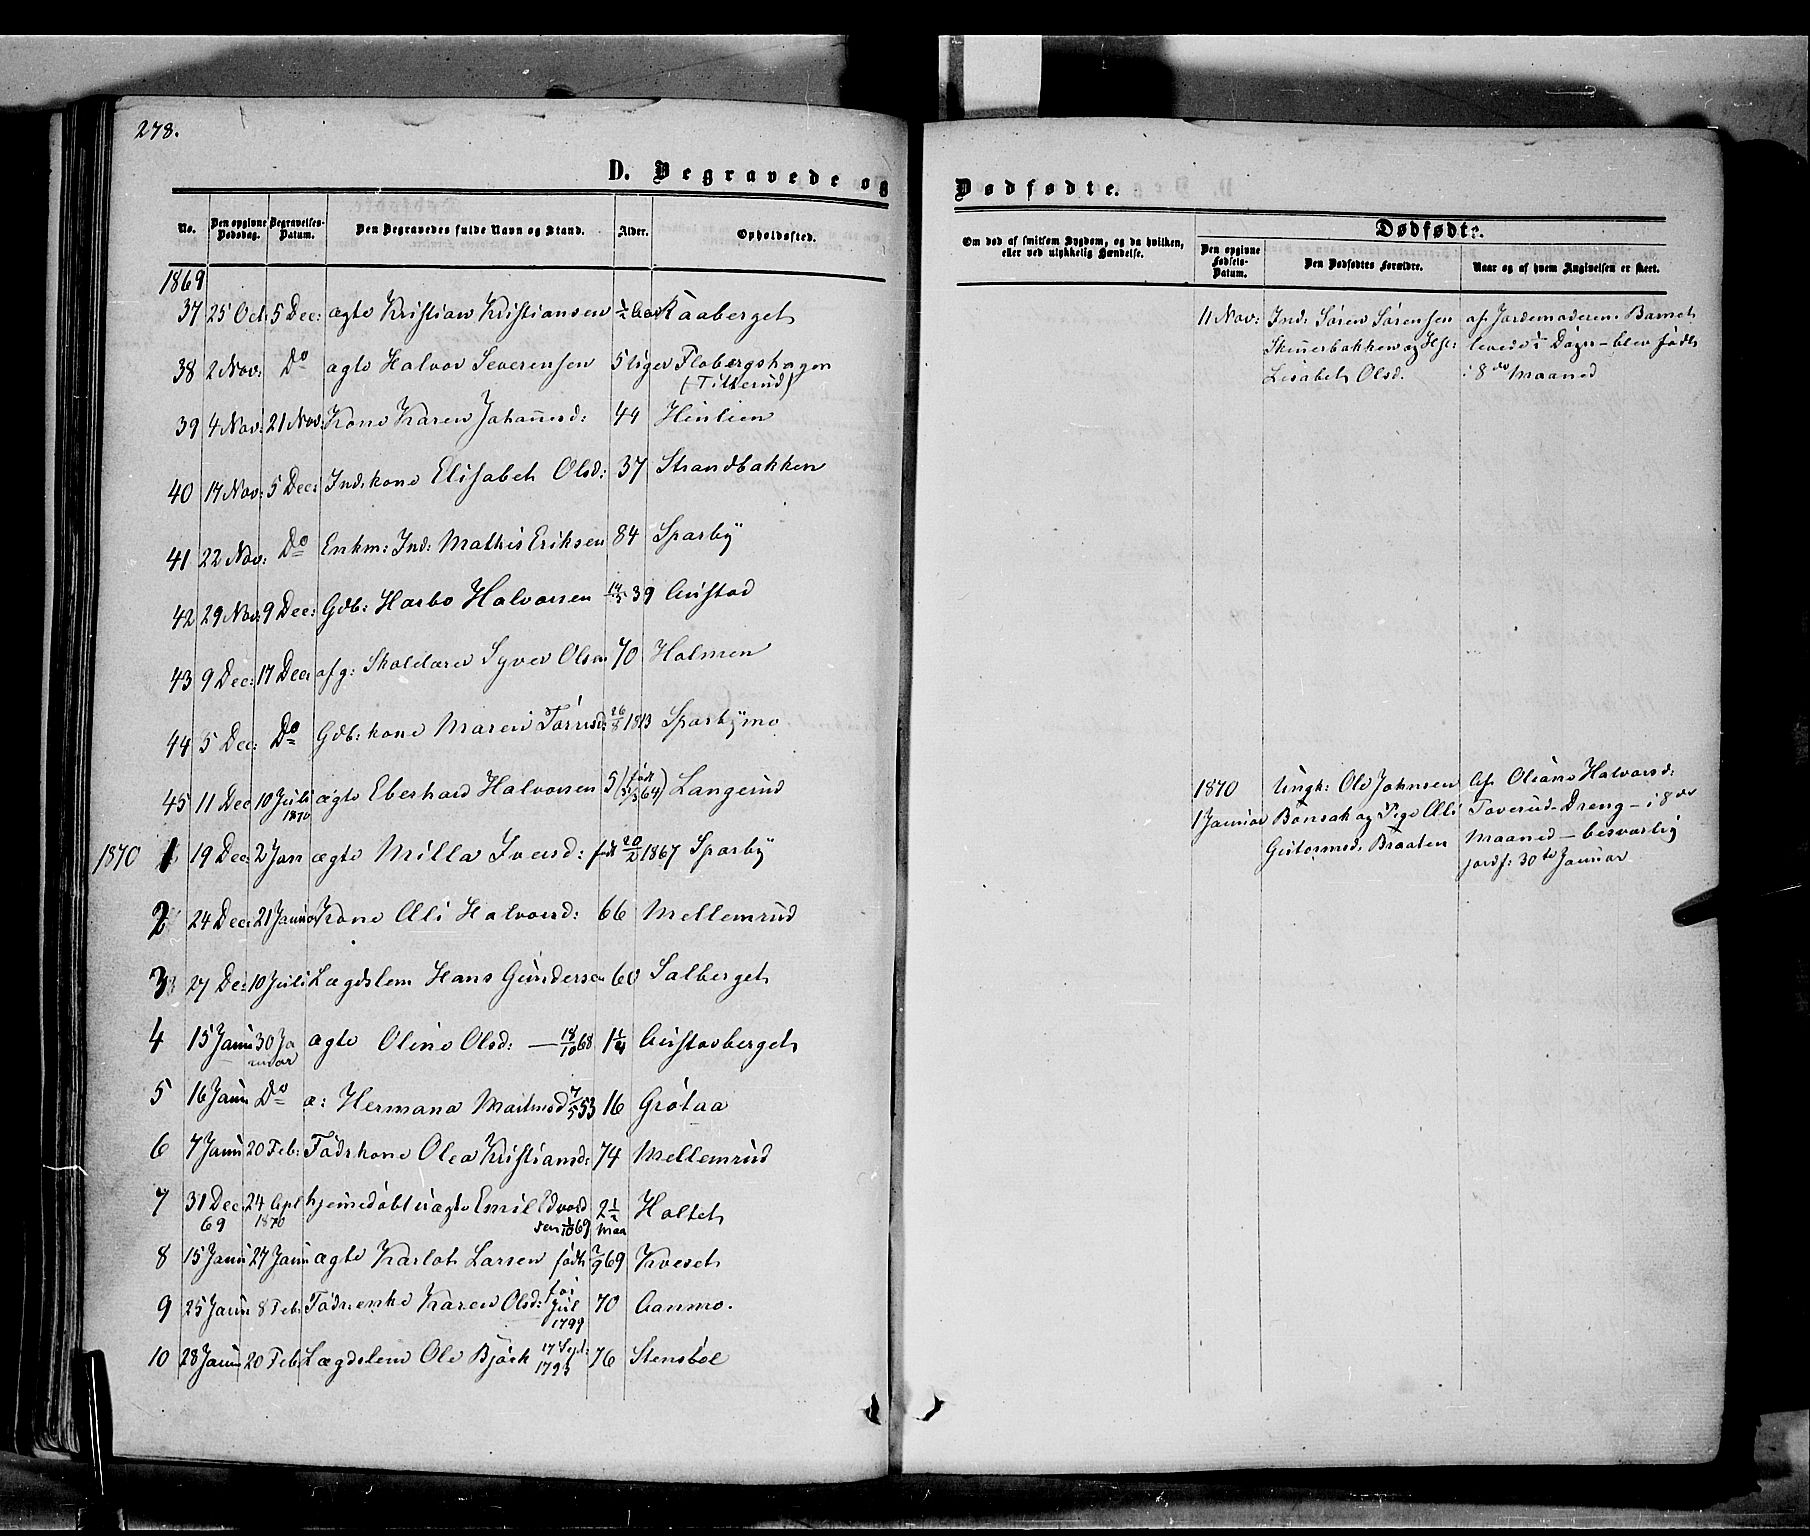 278.
D. Begravede og Dødfødte.
No. | Den opgivne Dødsdag. | Begravelses-Datum. | Den Begravedes fulde Navn og Stand. | Alder. | Opholdssted. | Om død af smitsom Sygdom, og da hvilken, eller ved ulykkelig Hændelse. | Dødfødte.
Den opgivne Fødsels-Datum. | Den Dødfødtes Forældre. | Naar og af hvem Angivelsen er skeet.
1869
37 25 Oct 5 Dec: ægte Kristian Kristiansen ½ Aar Kaaberget
38 2 Nov: Do ægte Halvor Seversensen 5 Uger Flobergshagen
(Titterud)
39 4 Nov: 21 Nov: Kone Karen Johannesd: 44 Heulien
40 14 Nov: 5 Dec: Indskone Elisabet Olsd: 37 Strandbakken
41 22 Nov: Do Enkm: Ind: Mathis Eriksen 84 Sparby
42 29 Nov: 9 Dec: Gdb: Harbo Halvorsen 39 Austad
43 9 Dec: 17 Dec afg: Skolelærer Syver Olsen 70 Holmen
44 5 Dec: Do Gdb: kone Maren Torersd: 26/8 1813 Sparbymo
45 11 Dec 10 Juli 1870 ægte Eberhard Halvorsen 5 (født 3/3 64) Langerud
1870 1 19 Dec: 2 Jan ægte Milla Iversd: født 20/2 1867 Sparby
2 24 Dec: 21 Januar Kone Oli Halvorsd: 66 Mellemrud
3 27 De: 10 Juli Lægdslem Hans Gundersen 60 Salberget
4 15 Janu 30 Januar ægte Oline Olsd: — 18/10 68 1¼ Austadberget
5 16 Janu Do æ: Hermana Martinsd 7/5 53 16 Grøtaa
6 7 Janu 20 Feb: Fødrkone Olea Kristiansd: 74 Mellemrud
7 31 Dec 69 24 Apl 1870 hjemedøbt uægte Emil Edvardsen 1/10 69 2½ Maa Holtet
8 15 Janu 27 Janu ægte Karlot Larsen født 2/9 69 Kveset
9 25 Janu 8 Feb: Fødr:enke Karen Olsd: før Jul 1799 70 Aanmo.
10 28 Janu 20 Feb: Lægdslem Ole Bjørk 17 Sept: 1793 76 Stensbøl
11 Nov: Ind: Søren Sørensen af Jordemoderen. Barnet
Skinerbakken og Hst: levede ½ Døgn – blev født
Lisabet Olsd. i 8de Maaned
1870 Ungk: Ole Johnsen Af Oliane Halvorsd:
1 Januar Bonsak og Pige Oli Toverud – Dreng – i 8de
Gutormsd. Braaten Maaned – besvarlig
jordf: 30te Januar